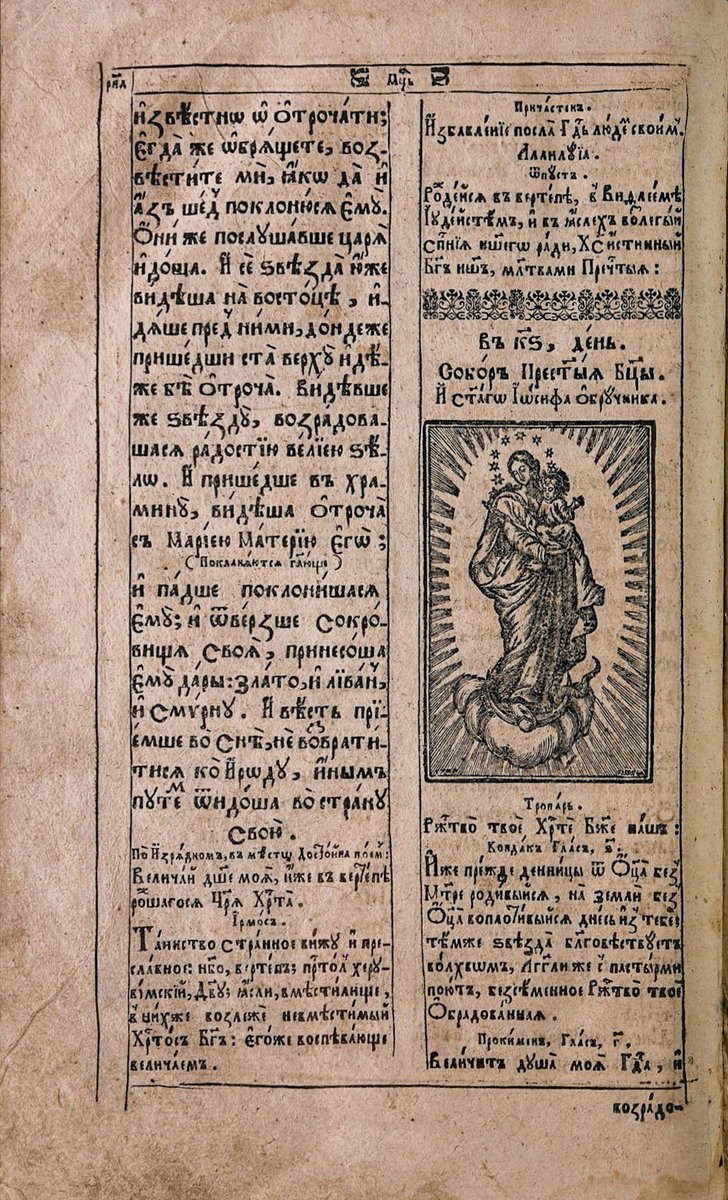 рн҃а
мц҃ъ
и҆звѣстнѡ ѡ҆ ѻ҆троча́ти;
є҆гда́ же ѡ҆брѧ́щете, воз-
вѣсти́те мѝ, ꙗ҆́кѡ да и҆
а҆́зъ ше́д поклоню́сѧ є҆мꙋ̀.
Ѻ҆ни́ же послꙋ́шавше царѧ̀
и҆до́ша. И҆ сѐ ѕвѣзда̀ ю҆́же
ви́дѣша на восто́цѣ, и҆-
дѧ́ше пред̾ ни́ми, до́ндеже
прише́дши ста̀ верхꙋ̀ и҆дѣ́-
же бѣ̀ Ѻ҆троча̀. Ви́дѣвше
же ѕвѣздꙋ̀, возра́дова-
шасѧ ра́достїю ве́лїею ѕѣ-
лѡ̀. И҆ прише́дше въ хра́-
минꙋ, ви́дѣша Ѻ҆троча̀
съ Марі́ею Ма́терїю є҆гѡ̀;
(Покланѧ́ютсѧ гл҃юще)
и҆ па́дше поклони́шасѧ
є҆мꙋ̀; и҆ ѿве́рзше сокрѡ́-
вища своѧ̑, принесо́ша
є҆мꙋ̀ да́ры: зла́то, и҆ лїва́н,
и҆ смѵ́рнꙋ. И҆ вѣ́сть прїе́-
емше во снѣ̀, не возврати́-
тисѧ ко И҆́рѡдꙋ, и҆ны́мъ
пꙋте́м ѿидо́ша во странꙋ̀
свою̀.
По И҆зрѧ́дномъ, в мѣ́стѡ Досто́йна пое́м:
Велича́й дш҃е моѧ̀, и҆́же въ верте́пѣ
ро́ждшагосѧ Цр҃ѧ Хрⷭ҇та̀.
І҆рмо́съ.
Та́инство стра́нное ви́жꙋ и҆ пре-
сла́вное: нб҃о, верте́пъ; прⷭ҇то́л херꙋ-
ві́мскїй, Дв҃ꙋ; ꙗ҆́сли, вмѣсти́лище,
в ни́хже возлежѐ невмѣсти́мый
Хрⷭ҇то́съ Бг҃ъ: є҆го́же воспѣва́юще
велича́емъ.
Прича́стенъ.
И҆збавле́нїе посла̀ Гдⷭ҇ь лю́дем свои́м.
Аллилꙋ́їа.
Ѿпꙋ́стъ.
Роде́йсѧ въ верте́пѣ, в Видлее́мѣ
І҆ꙋде́йстѣмъ, и҆ въ ꙗ҆́слех возлегі́й
сп҃нїѧ на́шегѡ ра́ди, Хс҃ и҆́стинный
Бг҃ъ на́шъ, мл҃твами Прчⷭ҇тыѧ:
Въ к҃ѕ, де́нь.
Собо́ръ Прест҃ы́ѧ Бц҃ы.
И҆ ст҃а́гѡ І҆ѡ́сифа ѻ҆брꙋ́чника.
Тропа́рь.
Ржⷭ҇тво̀ твоѐ Хрⷭ҇тѐ Бж҃е на́шъ:
Конда́къ Гла́съ, ѕ҃.
И҆́же пре́жде денни́цы ѿ Ѻ҆ц҃а̀ без̾
Мт҃ре роди́выйсѧ, на землѝ без̾
Ѻ҆ц҃а̀ воплоти́выйсѧ дне́сь и҆з̾ тебѐ:
тѣ́мже ѕвѣзда̀ благовѣ́ствꙋетъ
волхвѡ́мъ, А҆́гг҃ли же с̾ па́стырми
пою́тъ, безсѣ́менное Ржⷭ҇тво̀ твоѐ
Ѻ҆бра́дованнаѧ.
Проки́менъ, Гла́съ, г҃.
Вели́читъ дꙋша̀ моѧ̀ Гдⷭ҇а, и҆
возра́до-